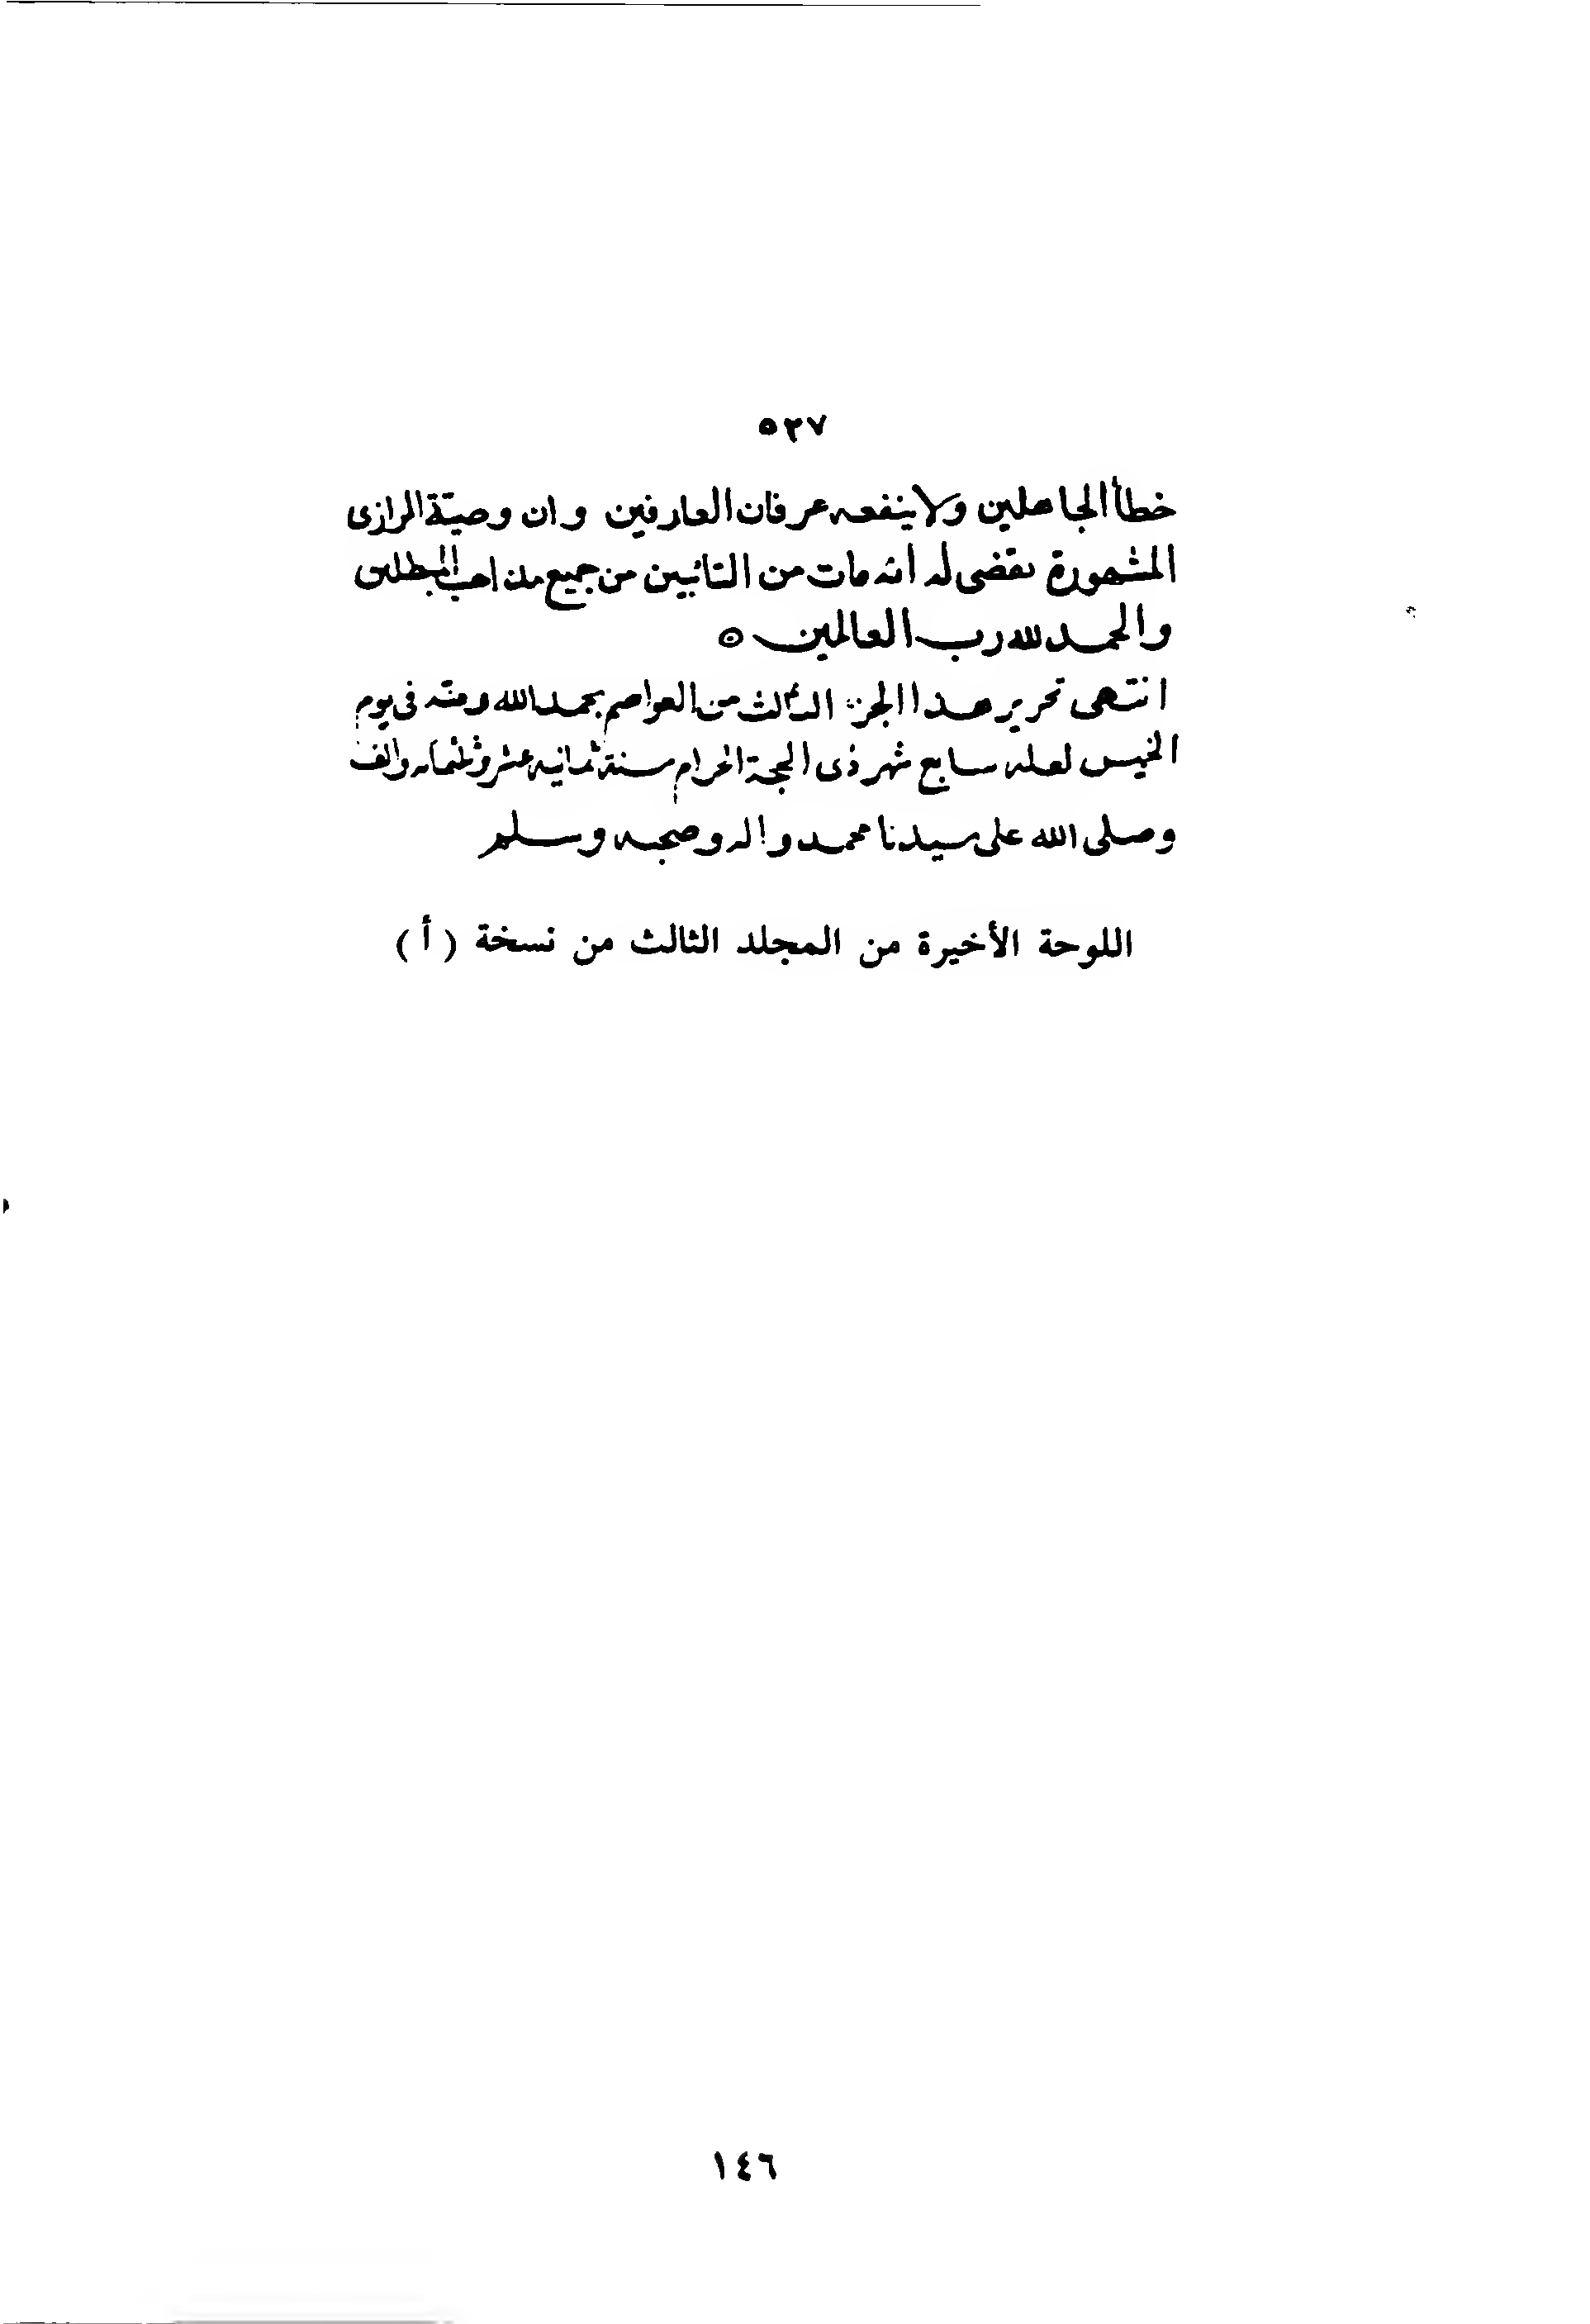 ٥٢٧
خطأ الجاهلين ولا ينفعه عرفان العارفين وان وصيّة الرازى
المشهورة تقضى له انه مات من التائبين من جميع مذاهب المبطلين
والحمد لله رب العالمين ٥
انتهى تحرير هذا الجزء الثالث من العواصم بحمد الله ومنّه فى يوم
الخميس لعله سابع شهر ذى الحجة الحرام سنة ثمانيه عشر وثلثمائه والف
وصلى الله على سيدنا محمد واله وصحبه وسلم
اللوحة الأخيرة من المجلد الثالث من نسخة (أ)
١٤٦